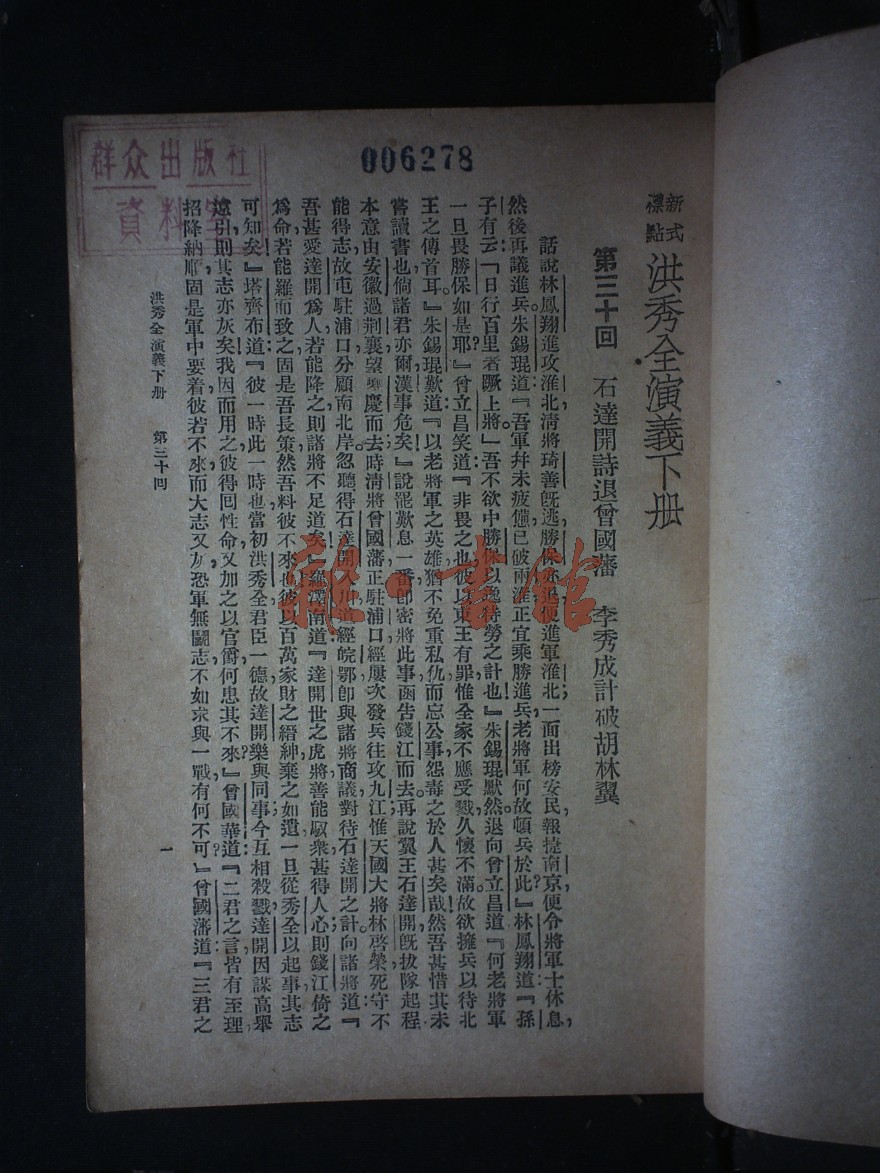 群众出版社
資料室
006278
新式
標點
洪秀全演義下册
第三十回　石達開詩退曾國藩　李秀成計破胡林翼
話說林鳳翔進攻淮北，清將琦善旣逃，勝保亦退，便進軍淮北；一面出榜安民，報捷南京，便令將軍士休息，
然後再議進兵。朱錫琨道：『吾軍幷未疲憊，已破兩淮，正宜乘勝進兵，老將軍何故頓兵於此？』林鳳翔道：『孫
子有云：「日行百里者蹶上將」吾不欲中勝保以逸待勞之計也！』朱錫琨默然。退向曾立昌道：『何老將軍
一旦畏勝保如是耶？』曾立昌笑道：『非畏之也，彼以東王有罪，惟全家不應受戮，久懷不滿。故欲擁兵以待北
王之傳首耳。』朱錫琨歎道：『以老將軍之英雄，猶不免重私仇而忘公事，怨毒之於人甚矣哉！然吾甚惜其未
嘗讀書也，倘諸君亦爾，漢事危矣！』說罷歎息一番，卽密將此事函吿錢江而去。再說翼王石達開旣拔隊起程，
本意由安徽過荆襄，望夔慶而去，時淸將曾國藩正駐浦口，經屢次發兵往攻九江，惟天國大將林啓榮死守，不
能得志，故屯駐浦口，分顧南北岸。忽聽得石達開入川，道經皖鄂，卽與諸將商議對待石達開之計。向諸將道：『
吾甚愛達開爲人，若能降之，則諸將不足道矣！』羅澤南道：『達開世之虎將，善能馭衆，甚得人心；則錢江倚之
爲命，若能羅而致之，固是吾長策。然吾料彼不來也，彼以百萬家財之縉紳，棄之如遺，一旦從秀全以起事，其志
可知矣！』塔齊布道：『彼一時，此一時也，當初洪秀全君臣一德，故達開樂與同事，今互相殺戮，達開因謀高舉
遠引，則其志亦灰矣！我因而用之，彼得回性命，又加之以官爵，何患其不來？』曾國華道：『二君之言，皆有至理，
招降納順，固是軍中要着，彼若不來，而大志又灰，恐軍無鬭志，不如求與一戰，有何不可？』曾國藩道：『三君之
洪秀全演義下册　第三十回
一
雜·書館